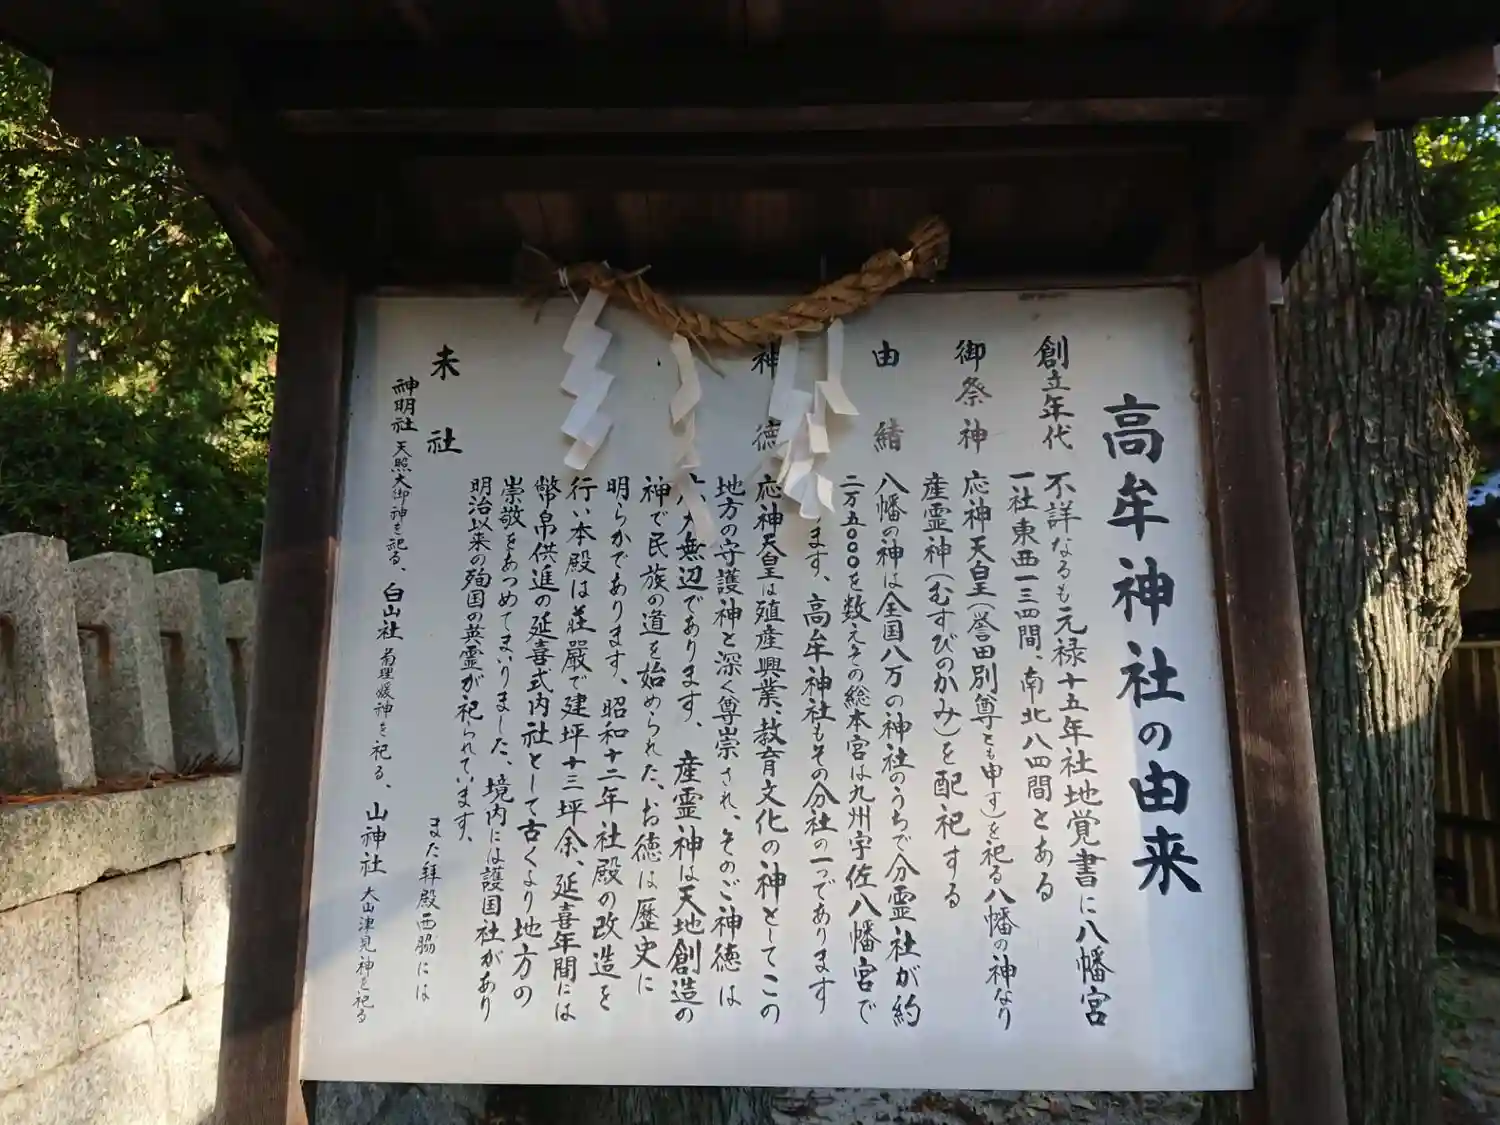 高牟神社の由来
創立年代
不詳なるも元禄十五年社地覚書に八幡宮
一社東西一三四間、南北八四間とある
御祭神
応神天皇(誉田別尊とも申す)を祀る八幡の神なり
産霊神(むすびのかみ)を配祀する
由緒
八幡の神は全国八万の神社のうちで分霊社が約
二万五〇〇〇を数えその総本宮は九州宇佐八幡宮で
ます、高牟神社もその分社の一つであります
神徳
応神天皇は殖産興業、教育文化の神としてこの
地方の守護神と深く尊崇され、そのご神徳は
広大無辺であります、産霊神は天地創造の
神で民族の道を始められた、お徳は歴史に
明らかであります、昭和十二年社殿の改造を
行い本殿は荘厳で建坪十三坪余、延喜年間には
幣帛供進の延喜式内社として古くより地方の
崇敬をあつめてまいりました、境内には護国社があり
明治以来の殉国の英霊が祀られています、
また拝殿西脇には
末社
神明社 天照大御神を祀る、白山社 菊理媛神を祀る、山神社 大山津見神を祀る